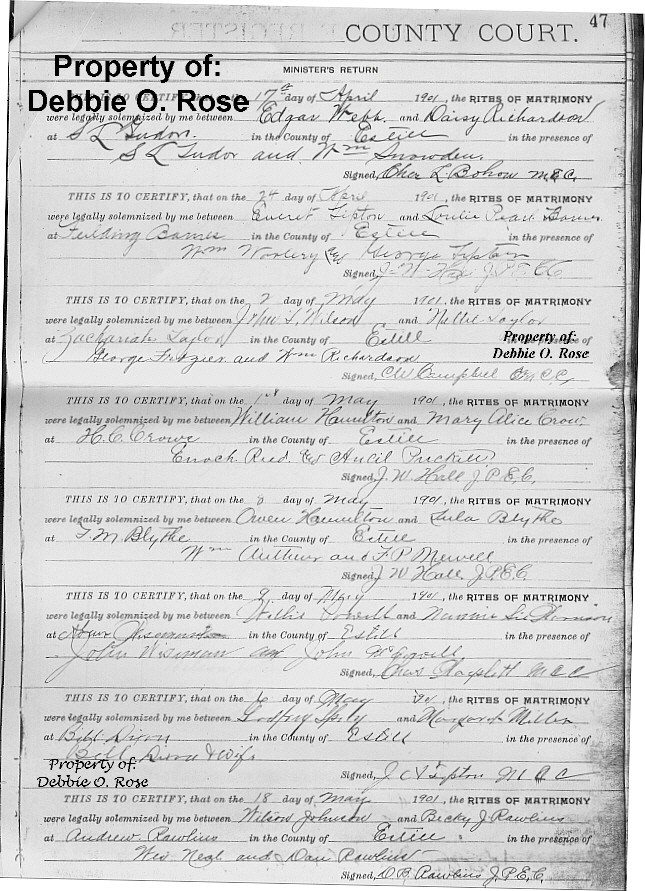 47
COUNTY COURT.
MINISTER'S RETURN
Property of:
Debbie O. Rose
17th day of April 1901, the RITES OF MATRIMONY
were legally solemnized by me between Edgar Webb and Daisy Richardson
at S L Tudors. in the County of Estill in the presence of
S L Tudor and Wm Snowden.
Signed, Chas L. Bohon M.E.C.
THIS IS TO CERTIFY, that on the 24 day of April 1901, the RITES OF MATRIMONY
were legally solemnized by me between Everet Tipton and
at Feilding in the County of Estill in the presence of
Wm George Tipton
Signed, J. P. E. C.
THIS IS TO CERTIFY, that on the 2 day of May 1901, the RITES OF MATRIMONY
were legally solemnized by me between John T. Wilson and Nallie Taylor
at Zachariah Taylor in the County of Estill in the presence of
Property of:
Debbie O. Rose
George Frazier and Wm Richardson
Signed, CW Campbell
THIS IS TO CERTIFY, that on the 1st day of May 1901, the RITES OF MATRIMONY
were legally solemnized by me between William Hamilton and Mary Alice Crow
at H. C. Crowe in the County of Estill in the presence of
Enoch Reed & Ancil Puckett
Signed, J. W. Hall J. P. E. C.
THIS IS TO CERTIFY, that on the 8 day of May 1901, the RITES OF MATRIMONY
were legally solemnized by me between Owen Hamilton and Lula Blythe
at T. M Blythe in the County of Estill in the presence of
Wm and F. P.
Signed, J W Hall J. P. E. C.
THIS IS TO CERTIFY, that on the 9 day of May 1901, the RITES OF MATRIMONY
were legally solemnized by me between Willie and
at in the County of Estill in the presence of
John Wiseman and John
Signed, M C C
THIS IS TO CERTIFY, that on the 6 day of May the RITES OF MATRIMONY
were legally solemnized by me between Godfrey and Margaret Miller
at Bill Dixon in the County of Estill in the presence of
Bill Dixon & Wife
Property of:
Debbie O. Rose
Signed, Tipton
THIS IS TO CERTIFY, that on the 18 day of May 1901, the RITES OF MATRIMONY
were legally solemnized by me between Wilson Johnson and Becky J Rawlins
at Andrew Rawlins in the County of Estill in the presence of
Wes Neal and Dan Rawlins
Signed, D. B. Rawlins J. P. E. C.